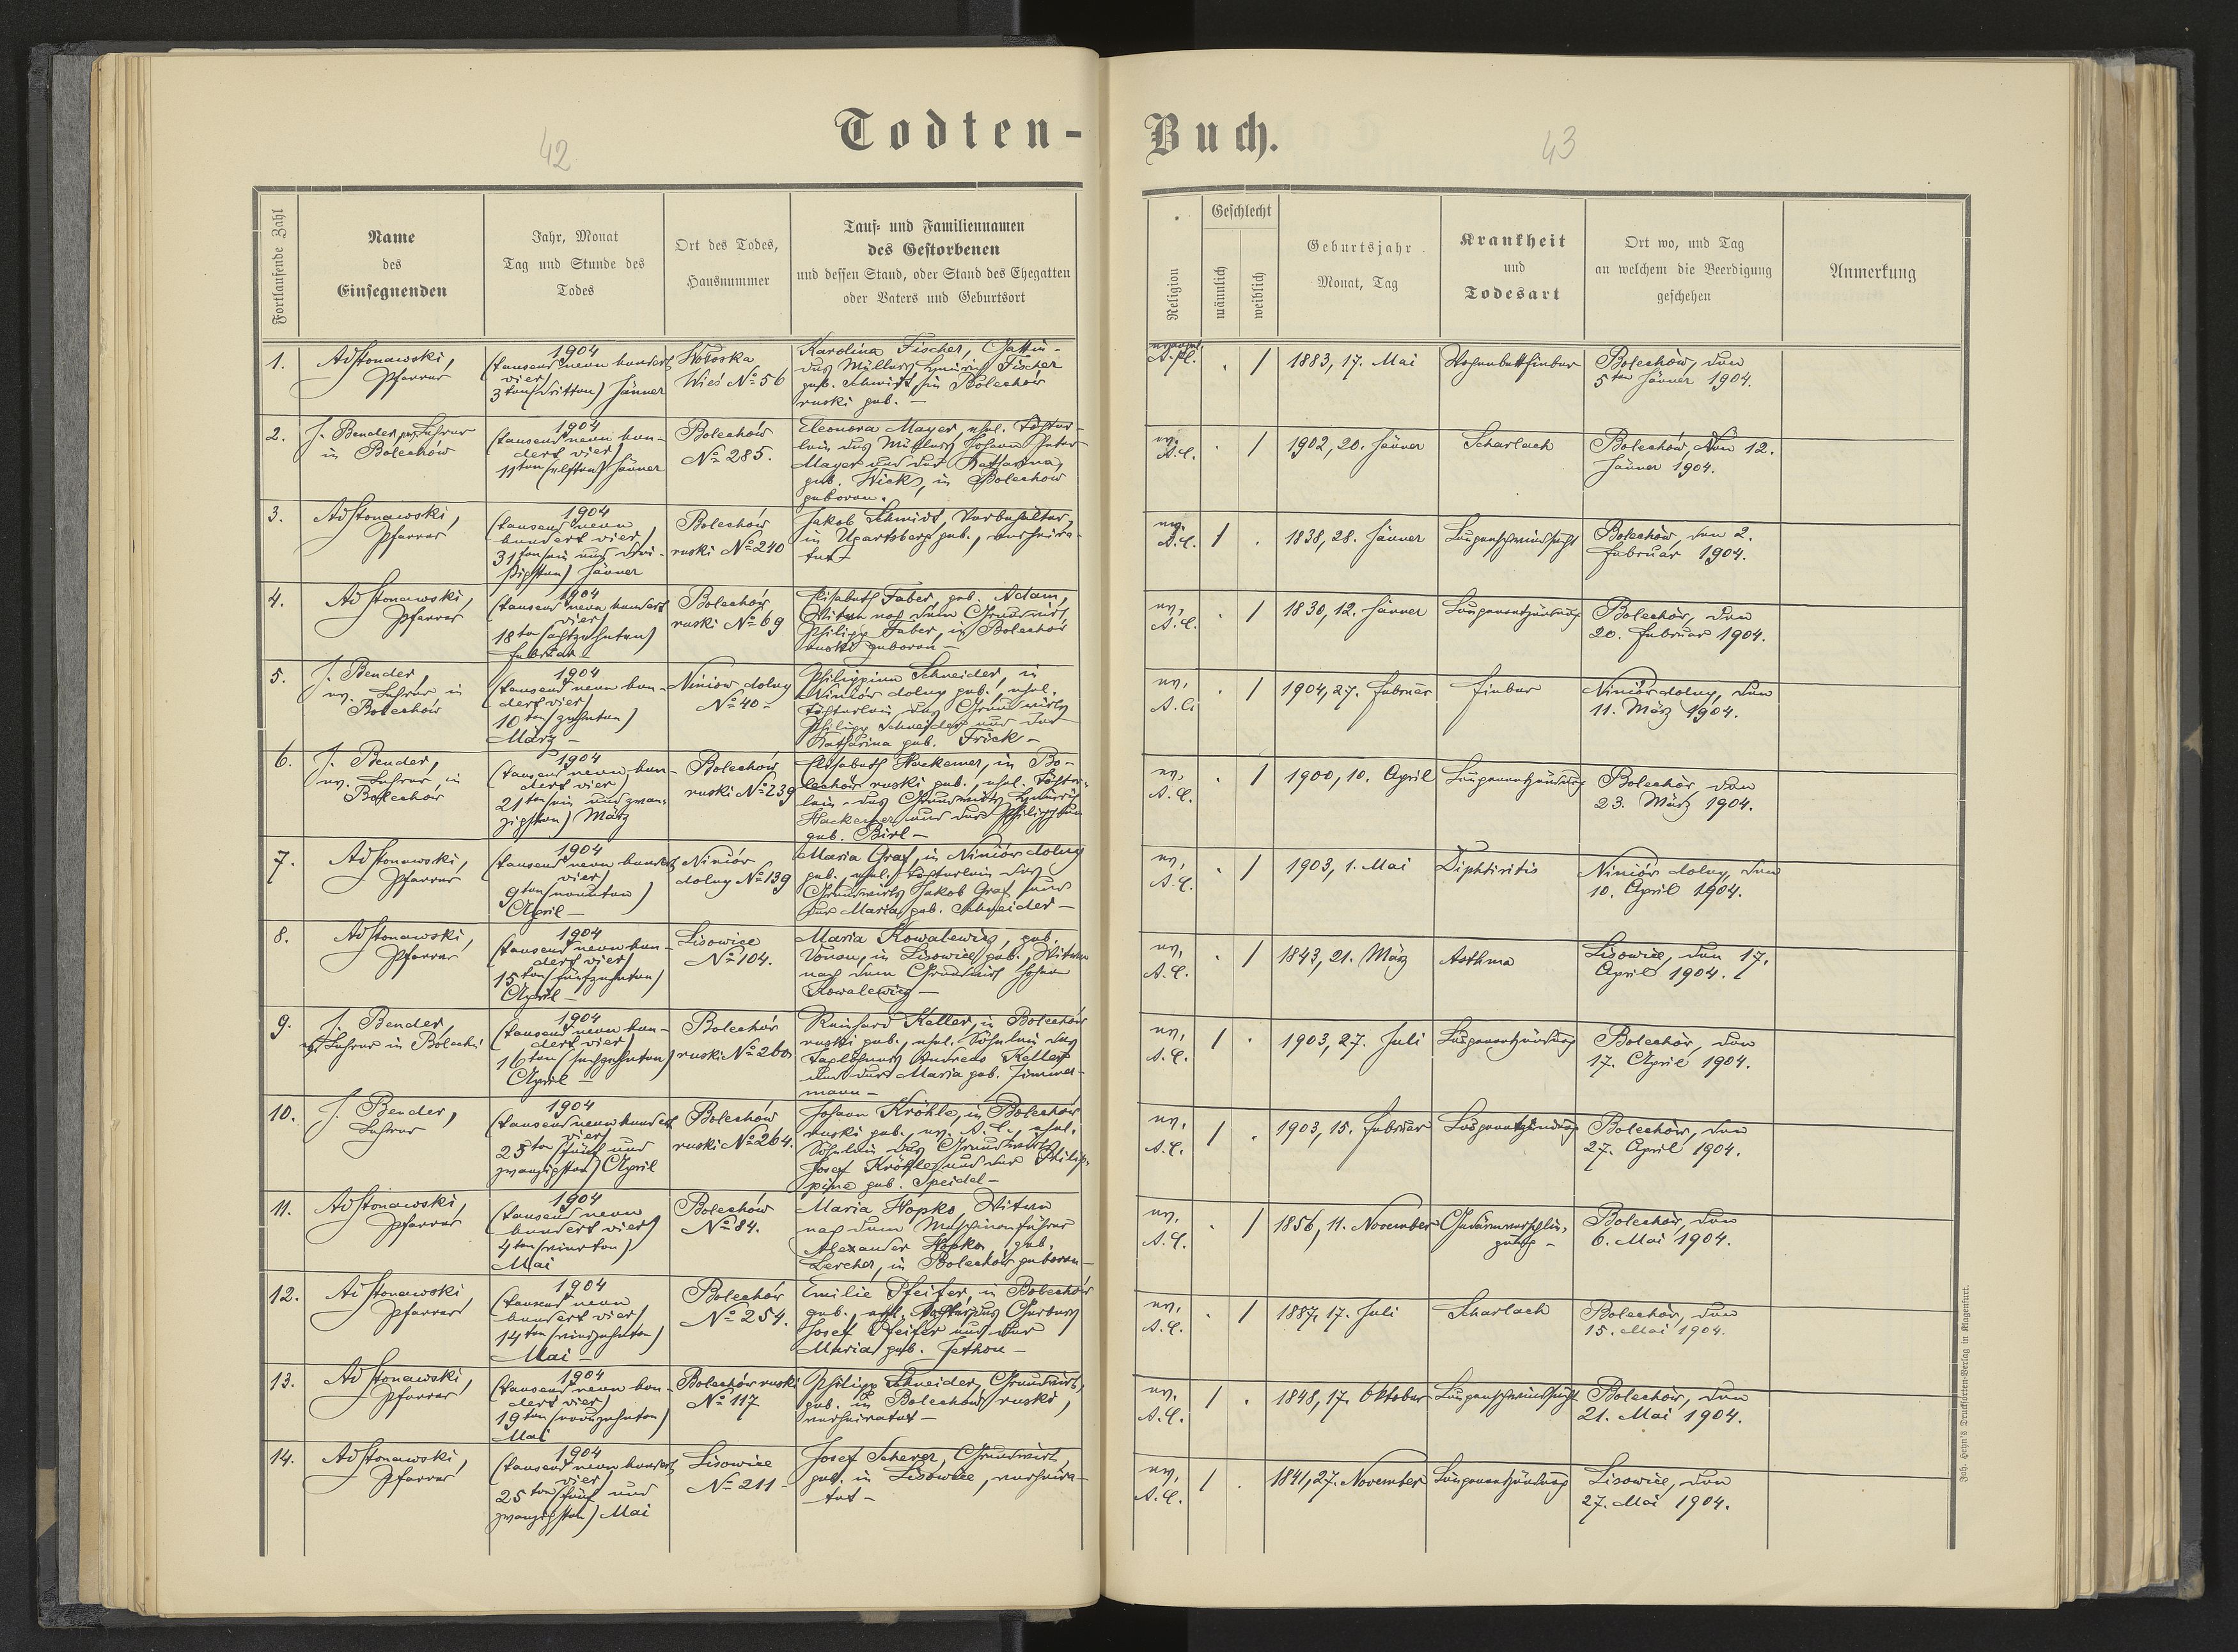 Todten-
Buch.
42
43
Fortlaufende Zahl
Name
des
Einsegnenden
Jahr, Monat
Tag und Stunde des
Todes
Ort des Todes,
Hausnummer
Tauf- und Familiennamen
des Gestorbenen
und dessen Stand, oder Stand des Ehegatten
oder Vaters und Geburtsort
Religion
Geschlecht
männlich
weiblich
Geburtsjahr
Monat, Tag
Krankheit
und
Todesart
Ort wo, und Tag
an welchem die Beerdigung
geschehen
Anmerkung
1.
Pfarrer
1904
(tausend neun hundert
vier)
3ten (dritten) Jänner
Wołoska
Wieś No 56
Karolina Fischer, Gattin
des Müllers Heinrich Fischer
geb. Schmidt, in Bolechów
ruski geb. -
A. C.
. /
1883, 17. Mai
Wochenbettfieber
Bolechów, den
5ten Jänner 1904.
2.
J. Bender, ev. Lehrer
in Bolechów
1904
(tausend neun hun-
dert vier)
11ten (elften) Jänner
Bolechów
No 285.
Eleonora Mayer, ehel. Töchter-
lein des Müllers Johann Peter
Mayer und der Katharina,
geb. Wicks, in Bolechów
geboren.
ev.
A. C.
. /
1902, 20. Jänner
Scharlach
Bolechów, den 12.
Jänner 1904.
3.
Pfarrer
1904
(tausend neun
hundert vier)
31ten (ein und drei-
ßigsten) Jänner
Bolechów
ruski No 240
Jakob Schmidt,
in Ugartsberg geb., verheira-
tet
ev.
A. C.
/ .
1838, 28. Jänner
Lungenschwindsucht
Bolechów, den 2.
Februar 1904.
4.
Pfarrer
1904
(tausend neun hundert
vier)
18ten (achtzehnten)
Februar
Bolechów
ruski No 69
Elisabeth Faber, geb. Adam,
Witwe nach dem Grundwirt
Philipp Faber, in Bolechów
ruski geboren -
ev.
A. C.
. /
1830, 12. Jänner
Lungenentzündung
Bolechów, den
20. Februar 1904.
5.
J. Bender,
ev. Lehrer in
Bolechów
1904
(tausend neun hun-
dert vier)
10ten (zehnten)
März -
Niniów dolny
No 40 -
Philippina Schneider, in
Niniów dolny geb., ehel.
Töchterlein des Grundwirts
Philipp Schneider und der
Katharina geb. Frick -
ev.
A. C.
. /
1904, 27. Februar
Fieber
Niniów dolny, den
11. März 1904.
6.
J. Bender,
ev. Lehrer in
Bolechów
1904
(tausend neun hun-
dert vier)
21ten (ein und zwan-
zigsten) März
Bolechów
ruski No 239
Elisabeth Hackemer, in Bo-
lechów ruski geb., ehel. Töchter-
lein des Grundwirts Heinrich
Hackemer und der Philippina
geb. Birl -
ev.
A. C.
. /
1900, 10. April
Lungenentzündung
Bolechów, den
23. März 1904.
7.
Pfarrer
1904
(tausend neun hundert
vier)
9ten (neunten)
April -
Niniów
dolny No 139
Maria Graf, in Niniów dolny
geb., ehel. Töchterlein des
Grundwirts Jakob Graf und
der Maria geb. Schneider -
ev.
A. C.
. /
1903, 1. Mai
Diphtiritis
Niniów dolny, den
10. April 1904.
8.
Pfarrer
1904
(tausend neun hun-
dert vier)
15ten (fünfzehnten)
April -
Lisowice
No 104.
Maria Kowalewicz, geb.
in Lisowice geb., Witwe
nach dem Grundwirt Johann
Kowalewicz -
ev.
A. C.
. /
1843, 21. März
Asthma
Lisowice, den 17.
April 1904.
9.
J. Bender,
ev. Lehrer in Bolechów
1904
(tausend neun hun-
dert vier)
16ten (sechzehnten)
April -
Bolechów
ruski No 260
Reinhard Keller, in Bolechów
ruski geb., ehel. Söhnlein des
Taglöhners Andreas Keller
und der Maria geb. Zimmer-
mann -
ev.
A. C.
/ .
1903, 27. Juli
Lungenentzündung
Bolechów, den
17. April 1904.
10.
J. Bender,
Lehrer
1904
(tausend neun hundert
vier)
25ten (fünf und
zwanzigsten) April
Bolechów
ruski No 264.
Johann Kröhle, in Bolechów
ruski geb., ev. A. C., ehel.
Söhnlein des Grundwirts
Josef Kröhle und der Philip-
pine geb. Speidel -
ev.
A. C.
/ .
1903, 15. Februar
Lungenentzündung
Bolechów, den
27. April 1904.
11.
Pfarrer
1904
(tausend neun
hundert vier)
4ten (vierten)
Mai
Bolechów
No 84.
Maria Hopko, Witwe
nach dem Maschinenführer
Alexander Hopko, geb.
Lercher, in Bolechów geboren -
ev.
A. C.
. /
1856, 11. November
Gedärmverschlin-
gung -
Bolechów, den
6. Mai 1904.
12.
Pfarrer
1904
(tausend neun
hundert vier)
14ten (vierzehnten)
Mai -
Bolechów
No 254.
Emilie Pfeifer, in Bolechów
geb., ehel. Tochter des Gerbers
Josef Pfeifer und der
Maria geb. Jethon -
ev.
A. C.
. /
1887, 17. Juli
Scharlach
Bolechów, den
15. Mai 1904.
13.
Pfarrer
1904
(tausend neun hun-
dert vier)
19ten (neunzehnten)
Mai
Bolechów ruski
No 117
Philipp Schneider, Grundwirt,
geb. in Bolechów ruski,
verheiratet -
ev.
A. C.
/ .
1848, 17. Oktober
Lungenschwindsucht
Bolechów, den
21. Mai 1904.
14.
Pfarrer
1904
(tausend neun hundert
vier)
25ten (fünf und
zwanzigsten) Mai
Lisowice
No 211 -
Josef Scherer, Grundwirt,
geb. in Lisowice, verheira-
tet -
ev.
A. C.
/ .
1841, 27. November
Lungenentzündung
Lisowice, den
27. Mai 1904.
Joh. Heyn's Drucksorten-Verlag in Klagenfurt.